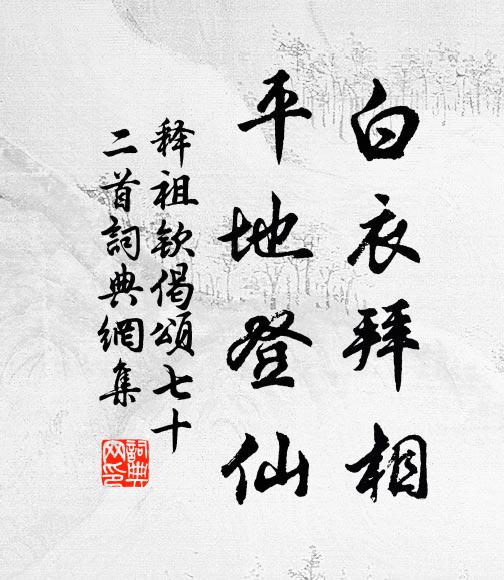 白衣拜相
平地登仙
释祖钦偈颂七十
二首詞典網集
詞典网印